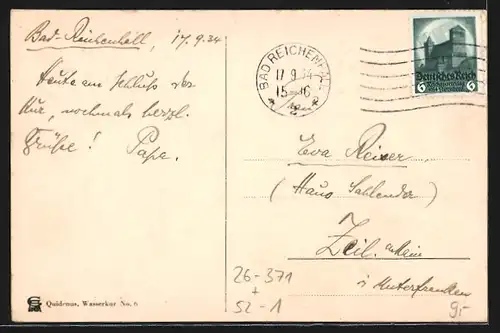 Bad-Reichenhall, 17.9.34
Heute am Schluß der
Kur, nochmals herzl.
Grüße! Papa.
BAD REICHENHALL
17.9.34
15-16
Deutsches Reich
6 6
Eva Reiser
(Haus Sahlender)
Zeil
in Unterfranken
26-371
+
52-1
9.-
Quidenus, Wasserkur No. 8